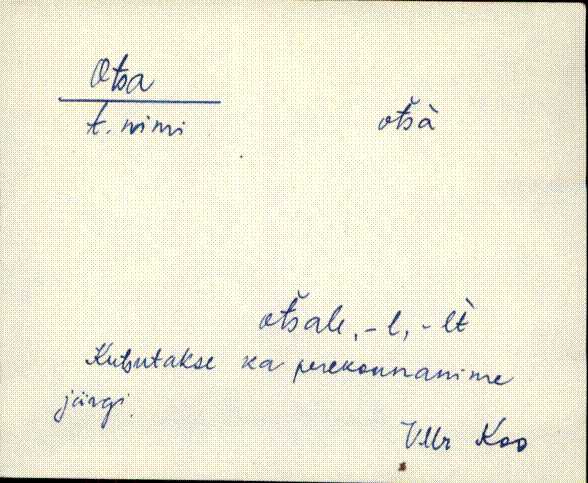 Otsa
t. nimi
otšà
otšale, -l, -lt̀
Kutsutakse ka perekonnanime
järgi.
Vllr Koo